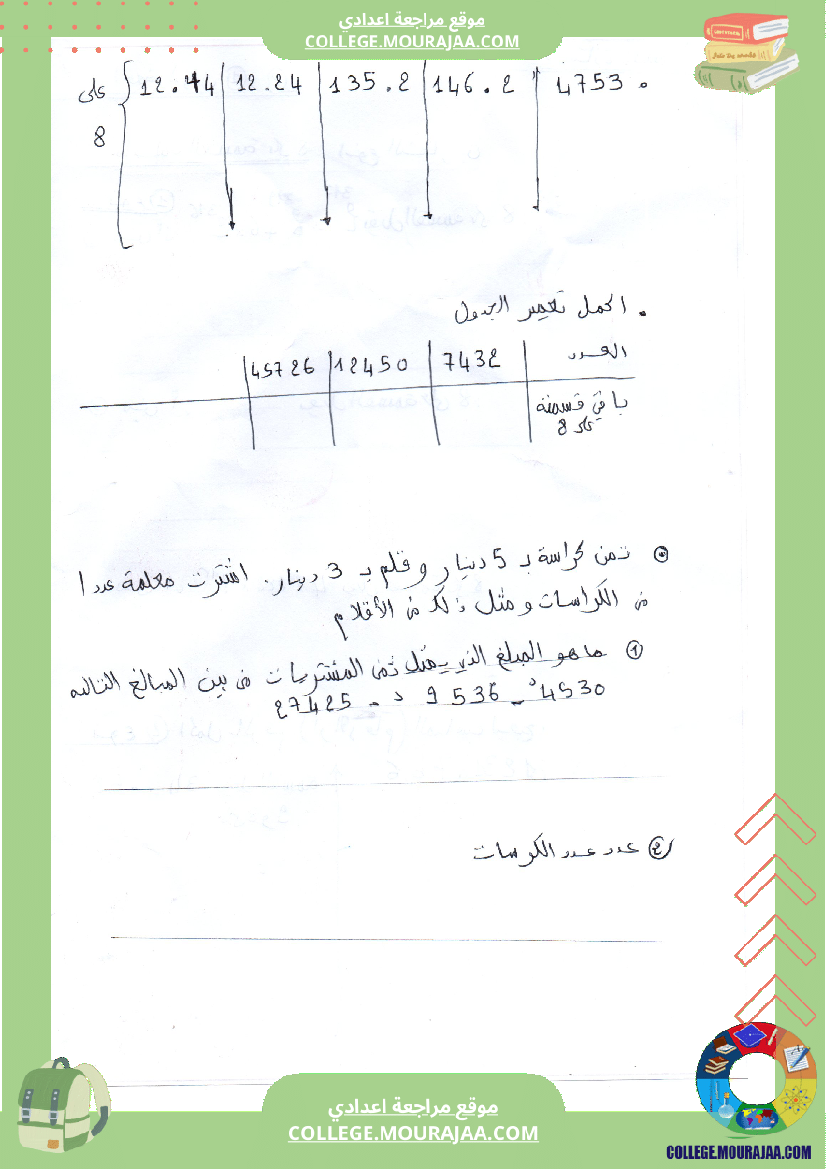 موقع مراجعة اعدادي
COLLEGE.MOURAJAA.COM
على 12.44 12.24 135.2 146.2 4753.
8
. اكمل تعمير الجدول
العدد 7432 12450 45726
باقي قسمته
على 8
ثمن كراسة بـ 5 دينار و قلم بـ 3 دينار. اشترت معلمة عددا
من الكراسات و مثل ذلك من الأقلام
① ما هو المبلغ الذي يمثل ثمن المشتريات من بين المبالغ التالية
4530 د - 9536 د - 27425
② عدد عدد الكرسات
موقع مراجعة اعدادي
COLLEGE.MOURAJAA.COM
COLLEGE.MOURAJAA.COM